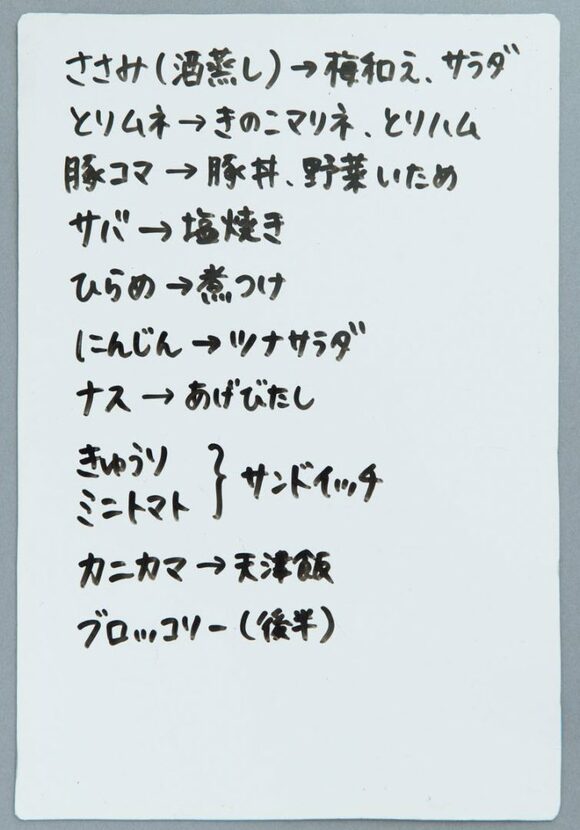 ささみ(酒蒸し)→梅和え、サラダ
とりムネ→きのこマリネ、とりハム
豚コマ→豚丼、野菜いため
サバ→塩焼き
ひらめ→煮つけ
にんじん→ツナサラダ
ナス→あげびたし
きゅうり
ミニトマト } サンドイッチ
カニカマ→天津飯
ブロッコリー(後半)